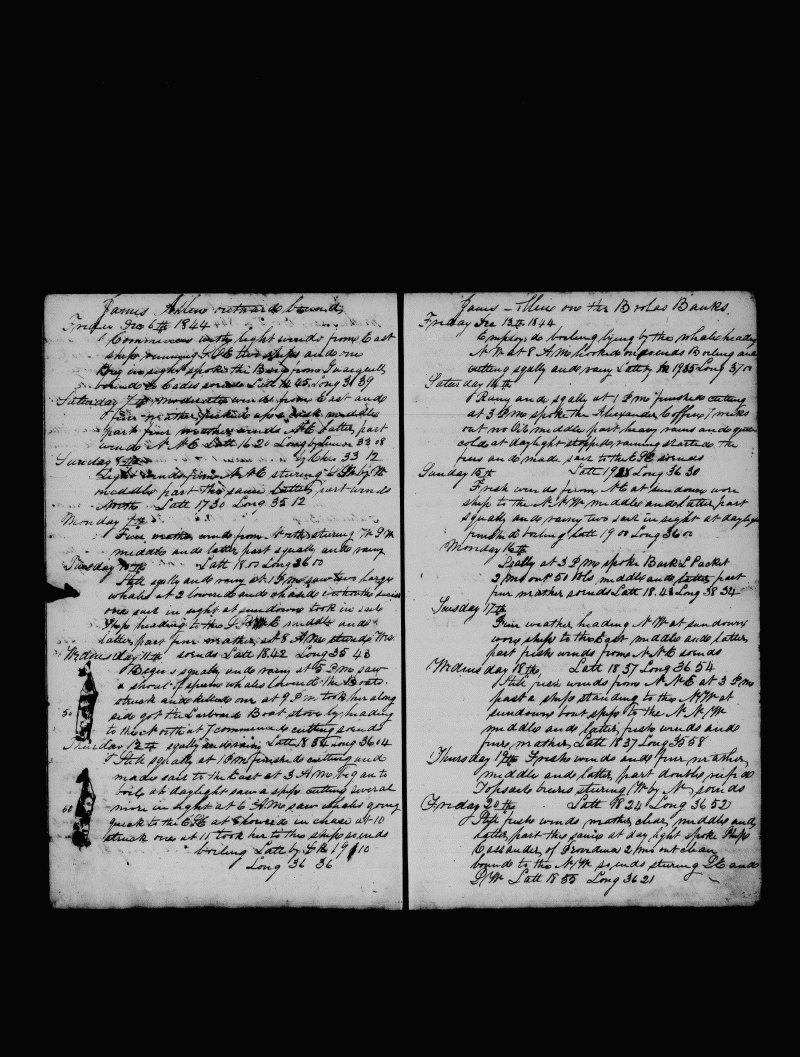 James Allen outward bound
Friday Dec 6th 1844
Commences with light winds from East
ship running S.S.E two ships and one
Brig in sight spoke the Brig from Guaquill
bound to Cades sounds Latt 14 45 Long 31 39
Saturday 7th moderate winds from East and
fine weather middle
part fine weather winds N E Latter part
wind N N E Latt 16 20 Long by Lunar 33 08
by Chro 33 12
Sunday 8th
Light winds from N N E sturing S W by W
middle part the same Latter part winds
North Latt 17 30 Long 35 12
Monday
Fine weather winds from North sturing W S W
middle and latter part squally and rainy
Tuesday 10th Latt 18.00 Long 36 00
Still sqally and rainy at 1 P M saw two large
whales at 2 lowered and chased without success
one sail in sight at sundown took in sail
Ship heading to the middle and
Latter part fine weather at 8 A M
Wednesday 11th sounds Latt 18.42 Long 35 43
Begins squally and rainy at 5 P M saw
a shoal of sperm whales lowered the Boats
struck and killed one at 9 P m took her along
side got the Larboard Boat stove by heading
50
to the North at 7 commenced cutting sounds
Thursday 12th sqally and rain Latt 18 54 Long 36 14
Still squally at 1 P M finished cutting and
made sail to the East at 3 A M began to
boil at daylight saw a ship cutting several
more in sight at 6 A M saw whales going
50
quick to the E S E at 8 lowered in chase at 10
struck one at 11 took her to the ship sounds
boiling Latt by D R 19 10
Long 36 36
James Allen on the Brolas Banks
Friday Dec 13th 1844
Employed boiling lying by the whale heading
N W at 8 A M hooked on sounds Boiling and
cutting sqally and rainy Latt by 19 35 Long 37 00
Saturday 14th
Rainy and sqally at 1 P m finished cutting
at 3 P m spoke the Alexander Coffin 7 weeks
out no Oil middle part heavy rains and quite
cold at daylight stopped raining started the
fires and made sail to the E S E sounds
Sunday 15th Latt 19 28 Long 36 30
Fresh winds from N E at sundown wore
ship to the N.N.W. middle and latter part
squally and rainy two sail in sight at daylight
finished boiling Latt 19 00 Long 36 00
Monday 16th
Sqally at 3 P m spoke Bark L Packet
2 Mo out 50 bbls middle and latter part
fine weather sounds Latt 18.48 Long 38 34
Tuesday 17th
Fine weather heading N W at sundown
wore ship to the East middle and Latter
part fresh winds from N N E sounds
Wednesday 18th, Latt 18 37 Long 36 54
Still fresh winds from N.N.E at 3 P m
past a ship standing to the N W at
sundown bout ship to the N.N.W.
middle and latter fresh winds and
fine weather, Latt 18 37 Long 35 58
Thursday 19th Fresh winds and fine weather
middle and latter part double reefd
Topsails sturing W by N sounds
Friday 20th Latt 18 24 Long 36 52
Still fresh winds weather clear, middle and
Latter part the same at day light spoke Ship
Cassander of Providence 2 mo out clean
bound to the N W sounds sturing S E and
S W Latt 18 55 Long 36 21